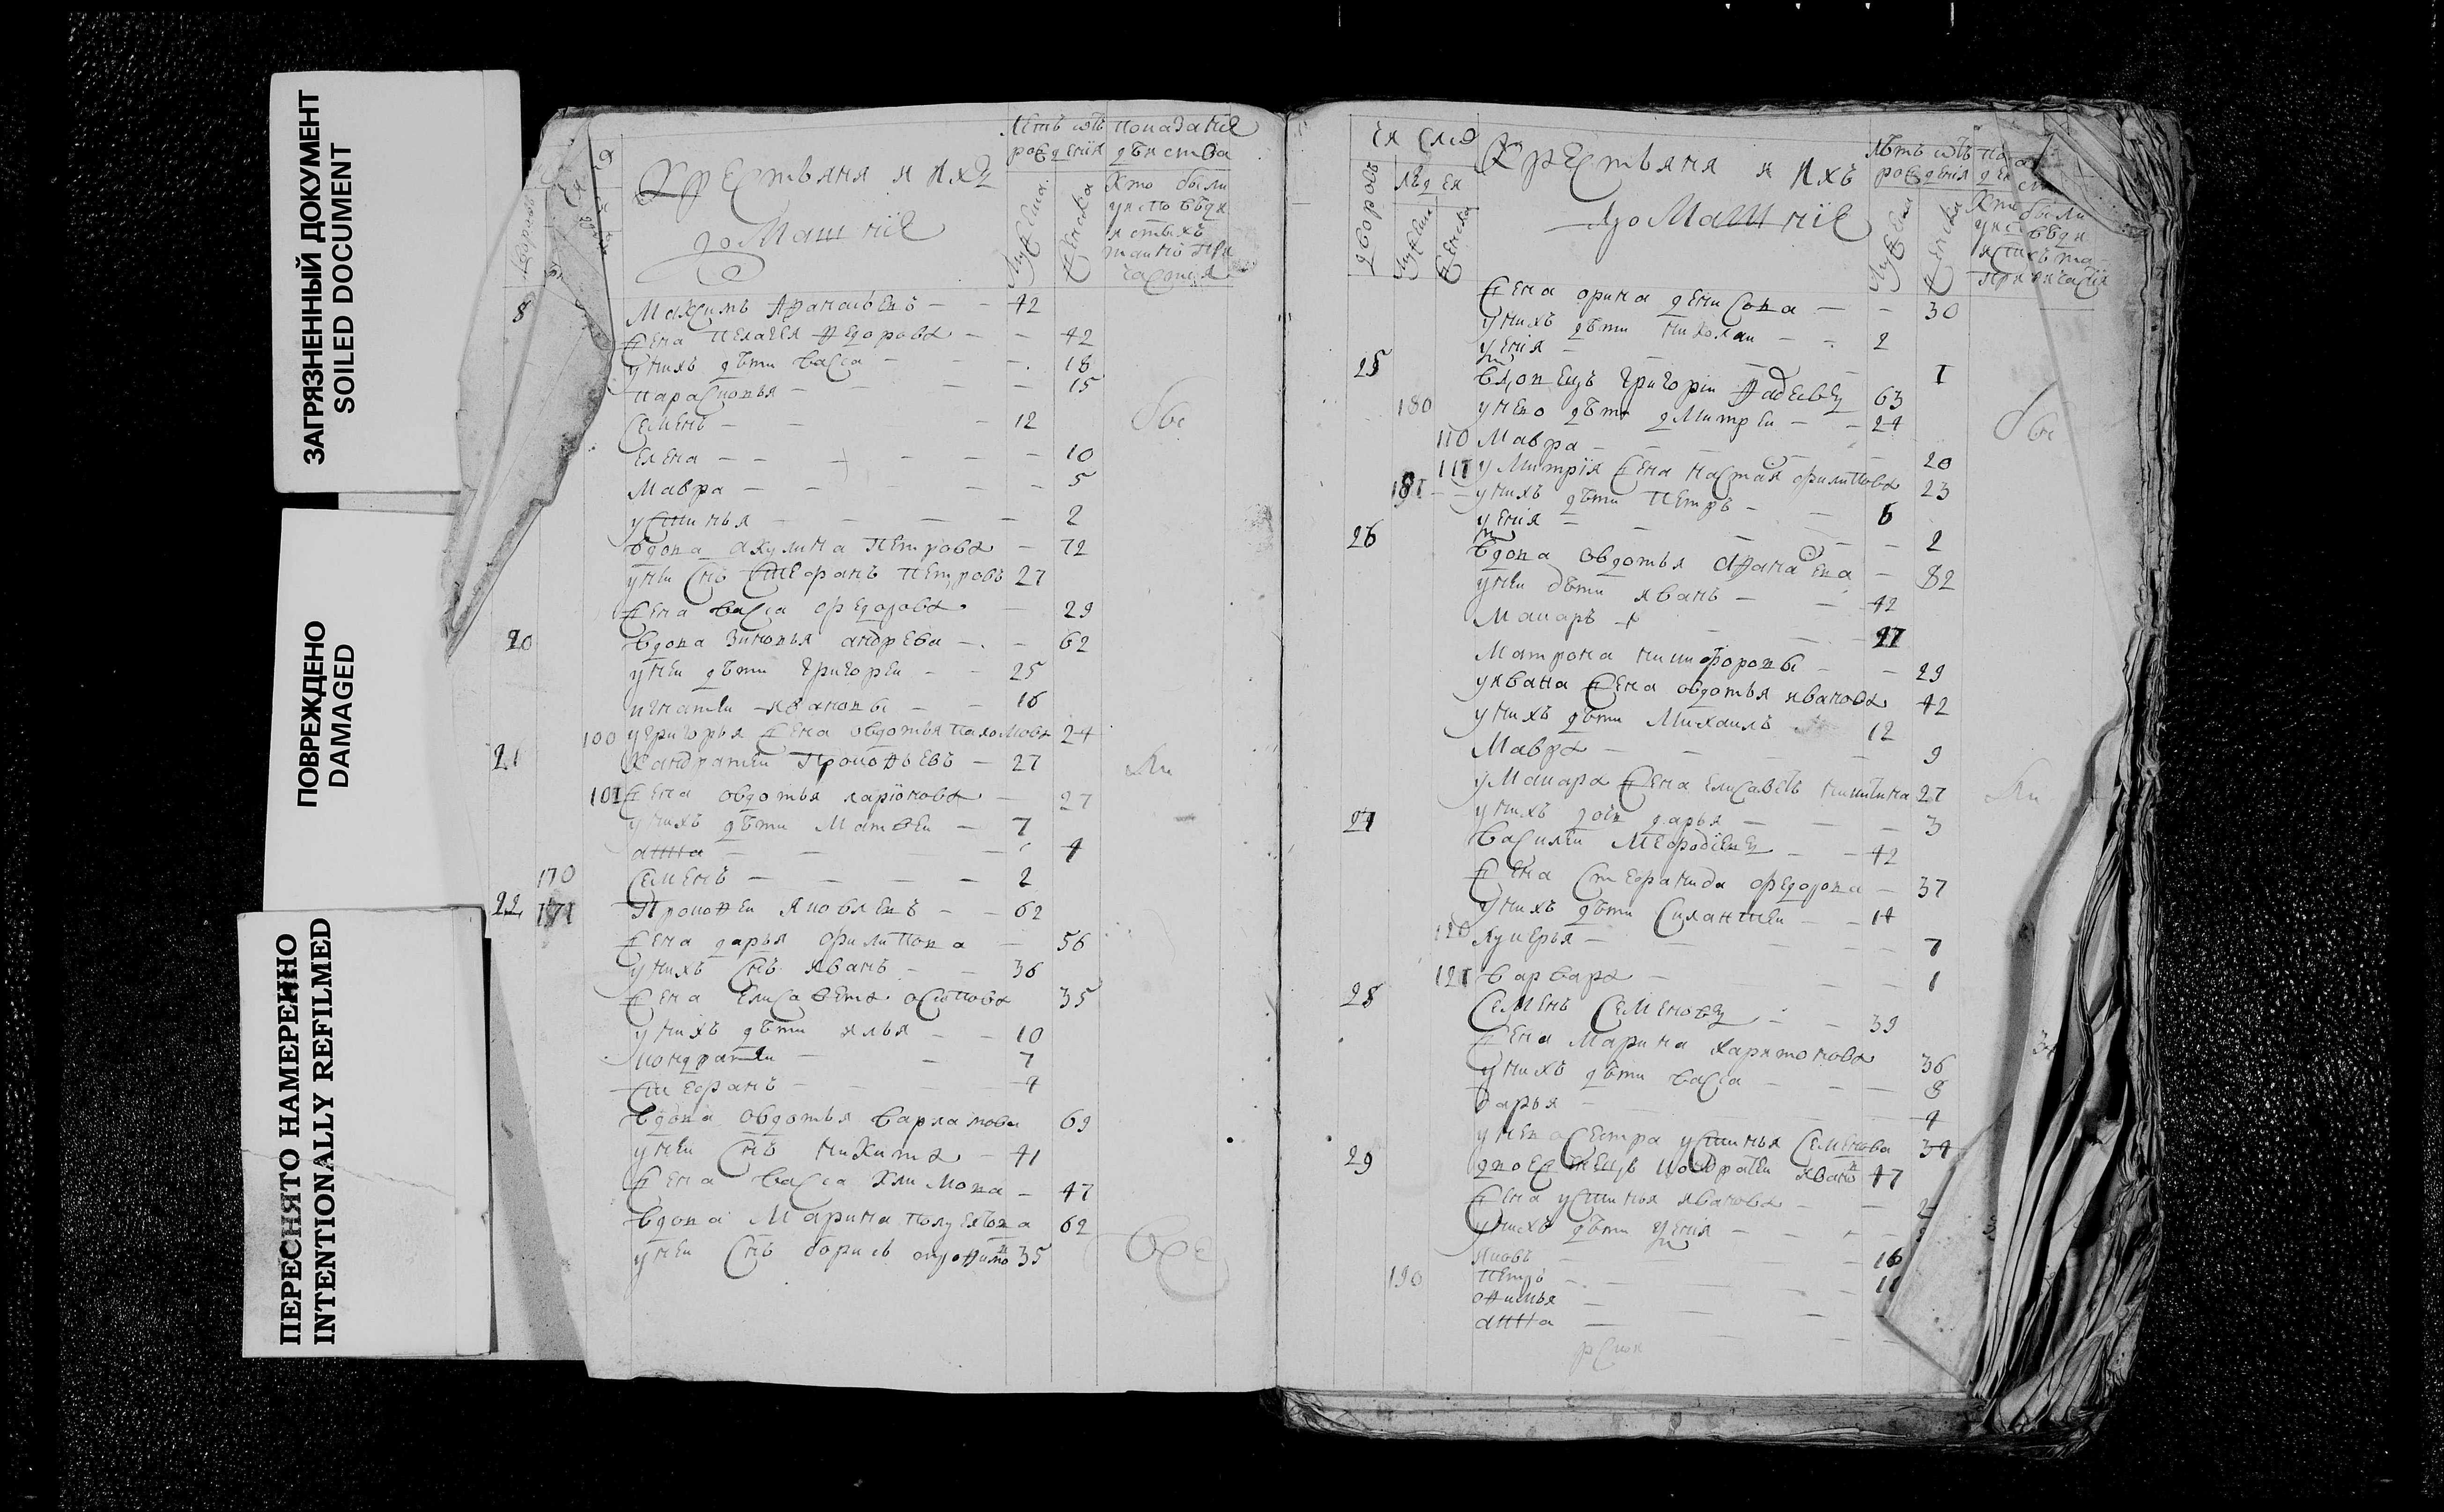 ЗАГРЯЗНЕННЫЙ ДОКУМЕНТ
SOILED DOCUMENT
ПОВРЕЖДЕНО
DAMAGED
ПЕРЕСНЯТО НАМЕРЕННО
INTENTIONALLY REFILMED
летъ отъ показаніе
рожденія действа
крестьяня и ихъ
домашніе
мужеска женска
кто были
у исповѣди
и стыхъ
таинъ при
частія
8 Максимъ Афанасьевъ 42
жена Пелагея Федорова 42
у нихъ дѣти Васса 18
Парасковья 15
Семенъ 12
Елена 10
Мавра 5
Устинья 2
вдова Акулина Петрова 72
у неи снъ Стефанъ Петровъ 27
жена Васса Федорова 29
20 вдова Зиновья Андреева 62
у неи дѣти Григореи 25
Игнатеи Ивановы 16
100 у Григорья жена Овдотья Пахомова 24
21 Кандратеи Прокофьевъ 27
101 жена Овдотья Ларіонова 27
у нихъ дѣти Матвеи 7
Анна 4
170 Семенъ 2
22 171 Прокофеи Яковлевъ 62
жена Дарья Филипова 56
у нихъ снъ Иванъ 36
жена Елисавета Осипова 35
у нихъ дѣти Илья 10
Кондратеи 7
Стефанъ 4
вдова Овдотья Варламова 69
у неи снъ Никита 41
жена Васса Климова 47
вдова Марина Полуехтова 62
у неи снъ Борисъ 35
все
число
крестьяня и ихъ
домашніе
лѣтъ отъ
рожденія
дворовъ
людеи
мужеска женска
мужеска женска
кто были
у исповѣди
причастія
жена Орина Денисова 30
у нихъ дѣти Николаи 2
1
25 вдовецъ Григореи Фадеевъ 63
180 у него дѣти Дмитреи 24
110 Мавра 20
111 у Митрія жена Настая Филипова 23
181 у нихъ дѣти Петръ 6
2
26 вдова Овдотья 82
у неи дѣти Иванъ 42
Макаръ 27
Матрона Никифоровы 29
у Ивана жена Овдотья Иванова 42
у нихъ дѣти Михаилъ 12
Мавра 9
у Макара жена Елисаветъ Никитина 27
у нихъ дочь Дарья 3
27 Василеи Мефодіевъ 42
жена Стефанида Федорова 37
у нихъ дѣти Силантеи 14
120 Лукерья 7
121 Варвара 1
28 Семенъ Семеновъ 39
жена Марина Харитонова 36
у нихъ дѣти Васса 8
Дарья 4
у него сестра Устинья Семенова 34
29 двоеженецъ Кондратеи Ивановъ 47
жена Устинья Иванова
у нихъ дѣти
Яковъ 16
190 Петръ
Офимья
Анна